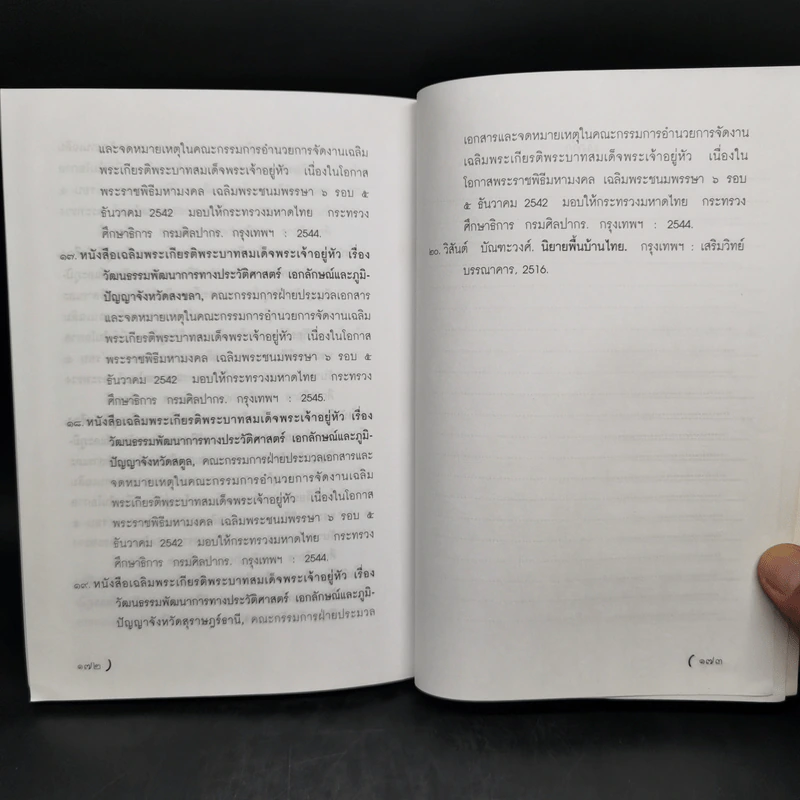 และจดหมายเหตุในคณะกรรมการอำนวยการจัดงานเฉลิม
พระเกียรติพระบาทสมเด็จพระเจ้าอยู่หัว เนื่องในโอกาส
พระราชพิธีมหามงคล เฉลิมพระชนมพรรษา ๖ รอบ ๕
ธันวาคม 2542 มอบให้กระทรวงมหาดไทย กระทรวง
ศึกษาธิการ กรมศิลปากร. กรุงเทพฯ : 2544.
๑๗. หนังสือเฉลิมพระเกียรติพระบาทสมเด็จพระเจ้าอยู่หัว เรื่อง
วัฒนธรรมพัฒนาการทางประวัติศาสตร์ เอกลักษณ์และภูมิ-
ปัญญาจังหวัดสงขลา, คณะกรรมการฝ่ายประมวลเอกสาร
และจดหมายเหตุในคณะกรรมการอำนวยการจัดงานเฉลิม
พระเกียรติพระบาทสมเด็จพระเจ้าอยู่หัว เนื่องในโอกาส
พระราชพิธีมหามงคล เฉลิมพระชนมพรรษา ๖ รอบ ๕
ธันวาคม 2542 มอบให้กระทรวงมหาดไทย กระทรวง
ศึกษาธิการ กรมศิลปากร. กรุงเทพฯ : 2545.
๑๘. หนังสือเฉลิมพระเกียรติพระบาทสมเด็จพระเจ้าอยู่หัว เรื่อง
วัฒนธรรมพัฒนาการทางประวัติศาสตร์ เอกลักษณ์และภูมิ-
ปัญญาจังหวัดสตูล, คณะกรรมการฝ่ายประมวลเอกสารและ
จดหมายเหตุในคณะกรรมการอำนวยการจัดงานเฉลิม
พระเกียรติพระบาทสมเด็จพระเจ้าอยู่หัว เนื่องในโอกาส
พระราชพิธีมหามงคล เฉลิมพระชนมพรรษา ๖ รอบ ๕
ธันวาคม 2542 มอบให้กระทรวงมหาดไทย กระทรวง
ศึกษาธิการ กรมศิลปากร. กรุงเทพฯ : 2544.
๑๙. หนังสือเฉลิมพระเกียรติพระบาทสมเด็จพระเจ้าอยู่หัว เรื่อง
วัฒนธรรมพัฒนาการทางประวัติศาสตร์ เอกลักษณ์และภูมิ-
ปัญญาจังหวัดสุราษฎร์ธานี, คณะกรรมการฝ่ายประมวล
๑๗๒ )
เอกสารและจดหมายเหตุในคณะกรรมการอำนวยการจัดงาน
เฉลิมพระเกียรติพระบาทสมเด็จพระเจ้าอยู่หัว เนื่องใน
โอกาสพระราชพิธีมหามงคล เฉลิมพระชนมพรรษา ๖ รอบ
๕ ธันวาคม 2542 มอบให้กระทรวงมหาดไทย กระทรวง
ศึกษาธิการ กรมศิลปากร. กรุงเทพฯ : 2544.
๒๐. วิสันต์ บัณฑะวงศ์. นิยายพื้นบ้านไทย. กรุงเทพฯ : เสริมวิทย์
บรรณาคาร, 2516.
( ๑๗๓